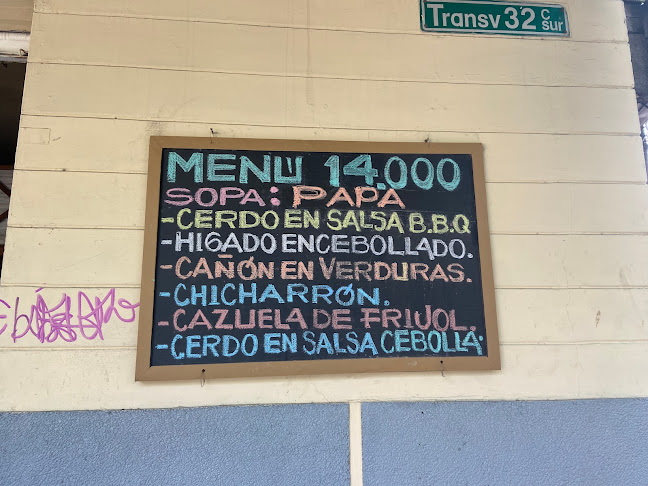 Transv 32 C sur
MENÚ 14.000
SOPA: PAPA
-CERDO EN SALSA B.B.Q
-HIGADO ENCEBOLLADO.
-CAÑÓN EN VERDURAS.
-CHICHARRÓN.
-CAZUELA DE FRIJOL.
-CERDO EN SALSA CEBOLLA.